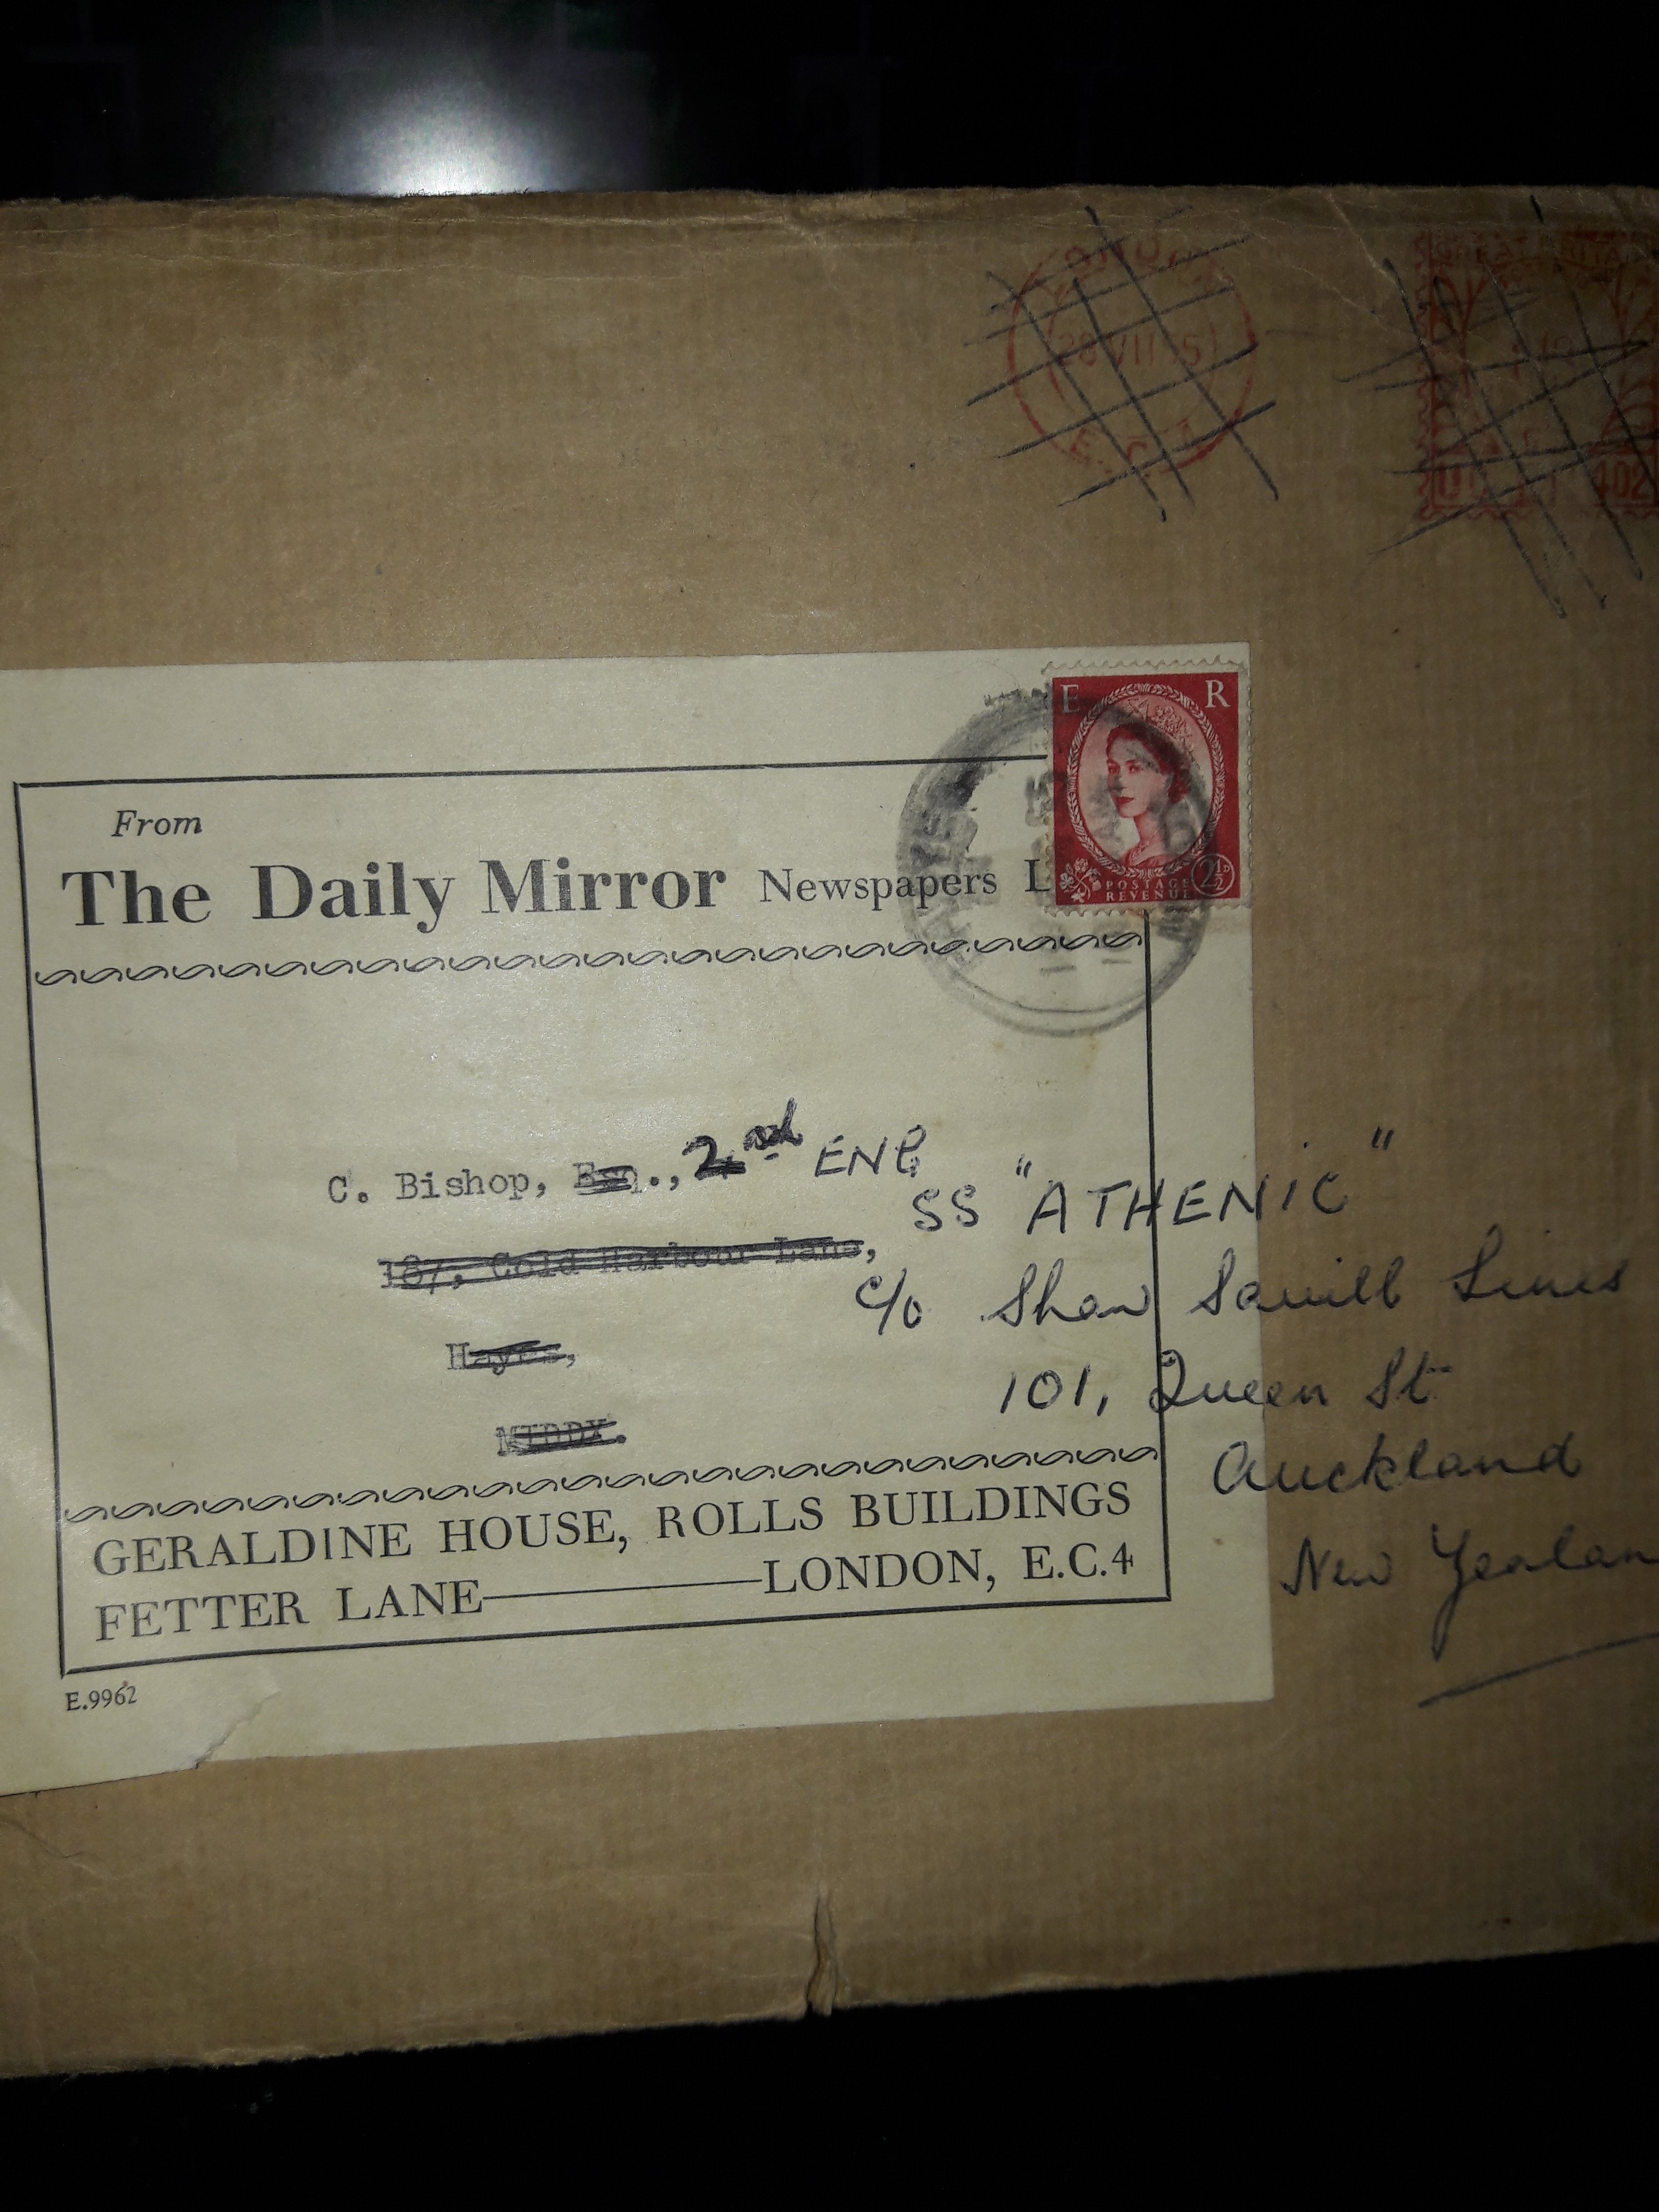 28 VII 5
E.C.4
GREAT BRITAIN
E R
POSTAGE
REVENUE
2½D
From
The Daily Mirror Newspapers L
C. Bishop, Esq., 2nd ENG
SS "ATHENIC"
187, Cold Harbour Lane,
c/o Shaw Savill Lines
Hayes,
101, Queen St
MIDDX.
Auckland
New Zealan
GERALDINE HOUSE, ROLLS BUILDINGS
FETTER LANE LONDON, E.C.4
E.9962